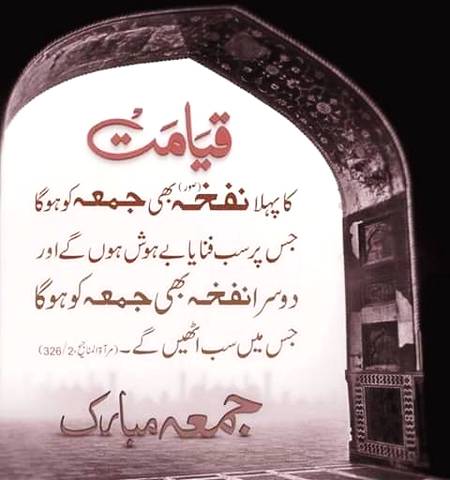 قیامت
کا پہلا نفخہ (صور) بھی جمعہ کو ہوگا
جس پر سب فنا یا بے ہوش ہوں گے اور
دوسرا نفخہ بھی جمعہ کو ہوگا
جس میں سب اٹھیں گے۔ (مرآۃ المناجیح، 326/2)
جمعہ مبارک